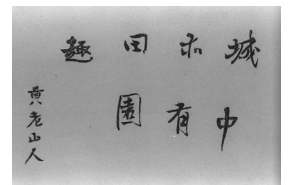 城中
亦有
田園
趣
黃老山人